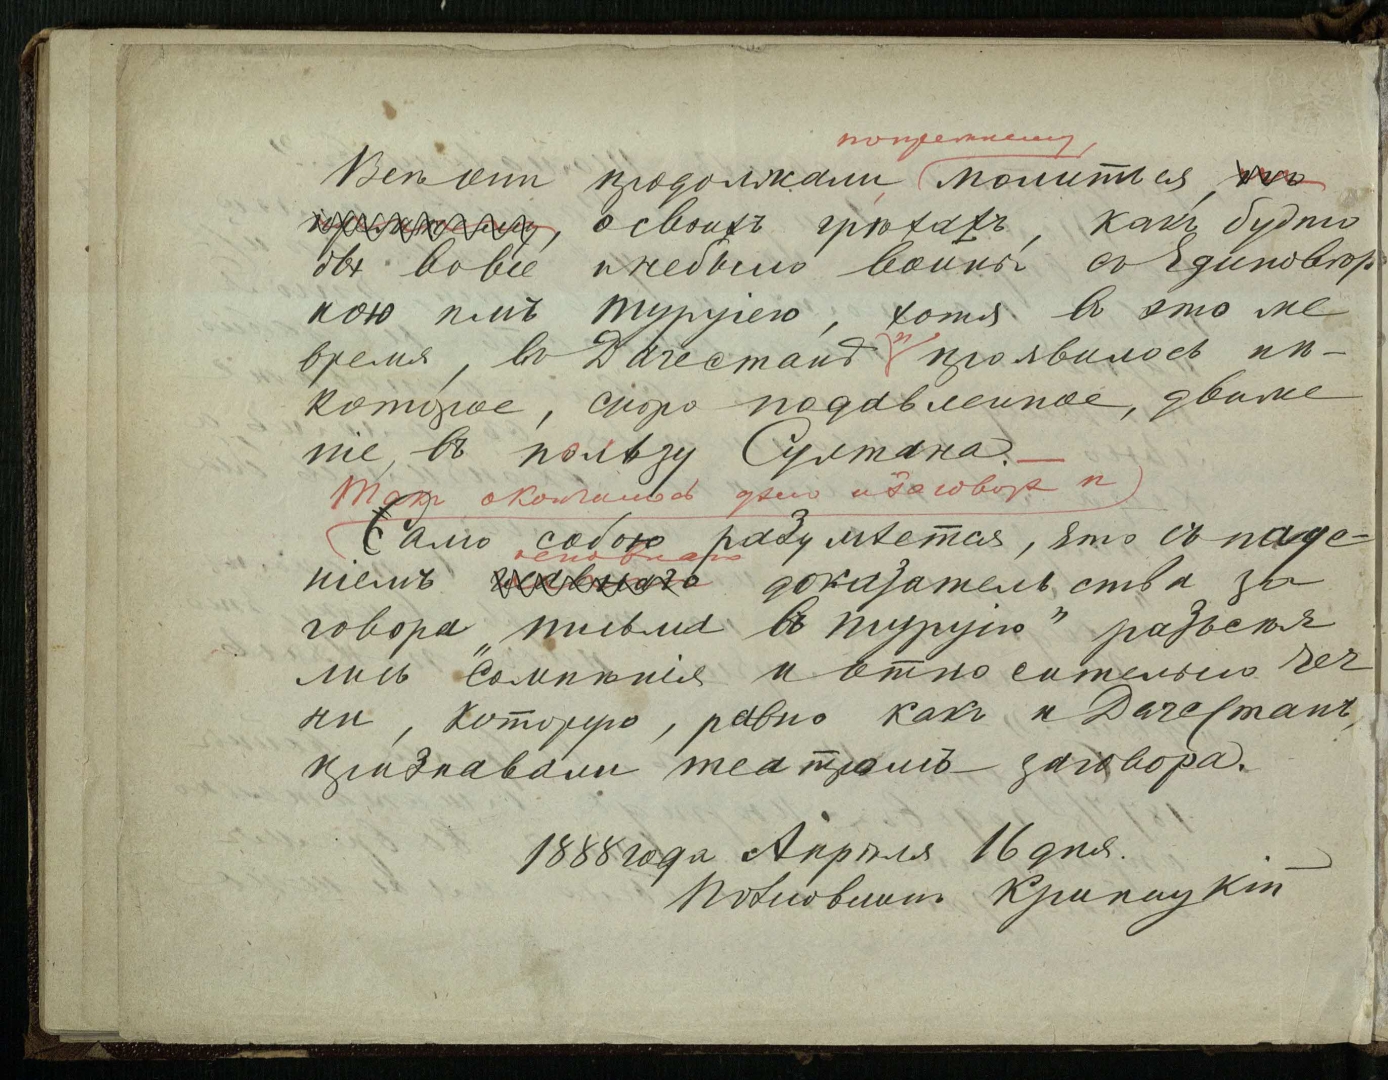 попрежнему,
продолжали молиться
о своихъ грѣхахъ, какъ будто
бы вовсе и небыло войны со Единовѣр
ною имъ Турціею, хотя въ это же
время, въ Дагестанѣ и проявилось нѣ-
которое, скоро подавленное, движе
ніе въ пользу Султана.
Такъ окончилось дѣло о заговорѣ
Само собою разумѣется, что съ паде-
основнаго
ніемъ главнаго доказательства за
говора „письма въ Турцію" разъсѣя
лись сомнѣнія и относительно Чеч
ни, которую, равно какъ и Дагестанъ,
признавали театромъ заговора.
1888 года Апрѣля 16 дня.
Полковникъ